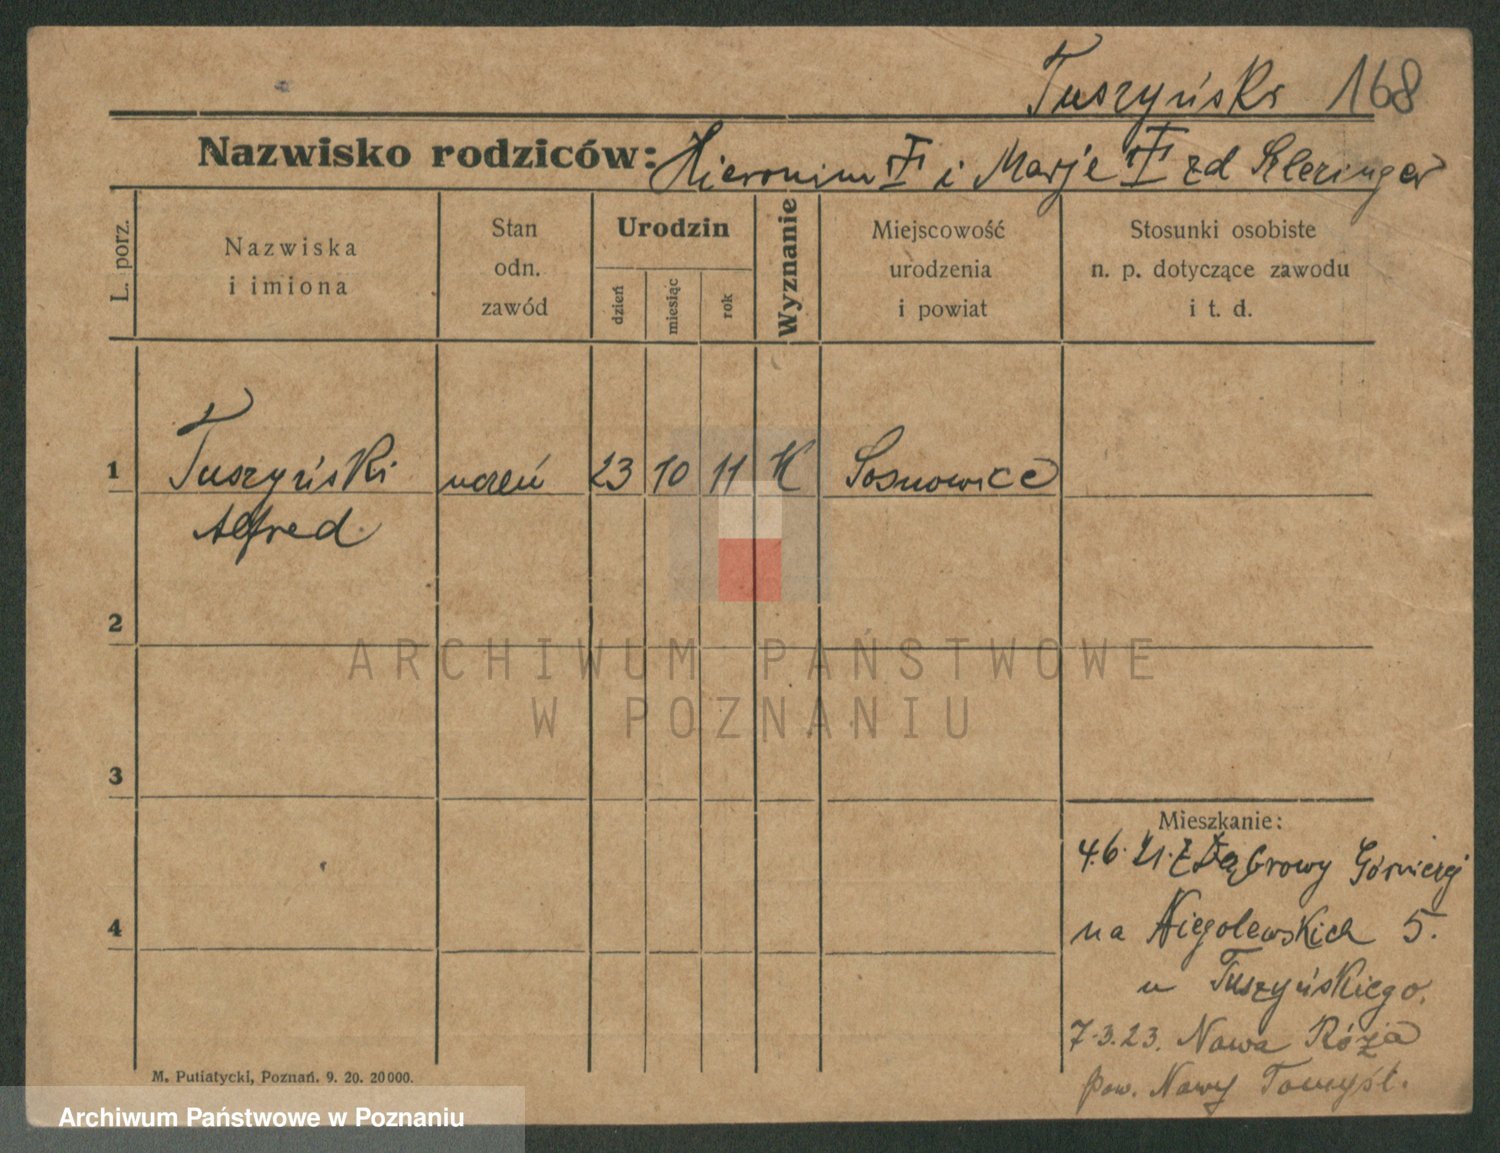 Tuszyński 168
Nazwisko rodziców: Hieronim i Marje zd Slezinger
L. porz.
Nazwiska
i imiona
Stan
odn.
zawód
Urodzin
dzień
miesiąc
rok
Wyznanie
Miejscowość
urodzenia
i powiat
Stosunki osobiste
n. p. dotyczące zawodu
i t. d.
1 Tuszyński uczeń 23 10 11 K Sosnowice
Alfred.
2
3
4
Mieszkanie:
4.6.21. z Dąbrowy Górniczej
na Niegolewskich 5.
u Tuszyńskiego.
7.3.23. Nowa Róża
pow. Nowy Tomyśl.
M. Putiatycki, Poznań. 9. 20. 20000.
ARCHIWUM PAŃSTWOWE
W POZNANIU
Archiwum Państwowe w Poznaniu